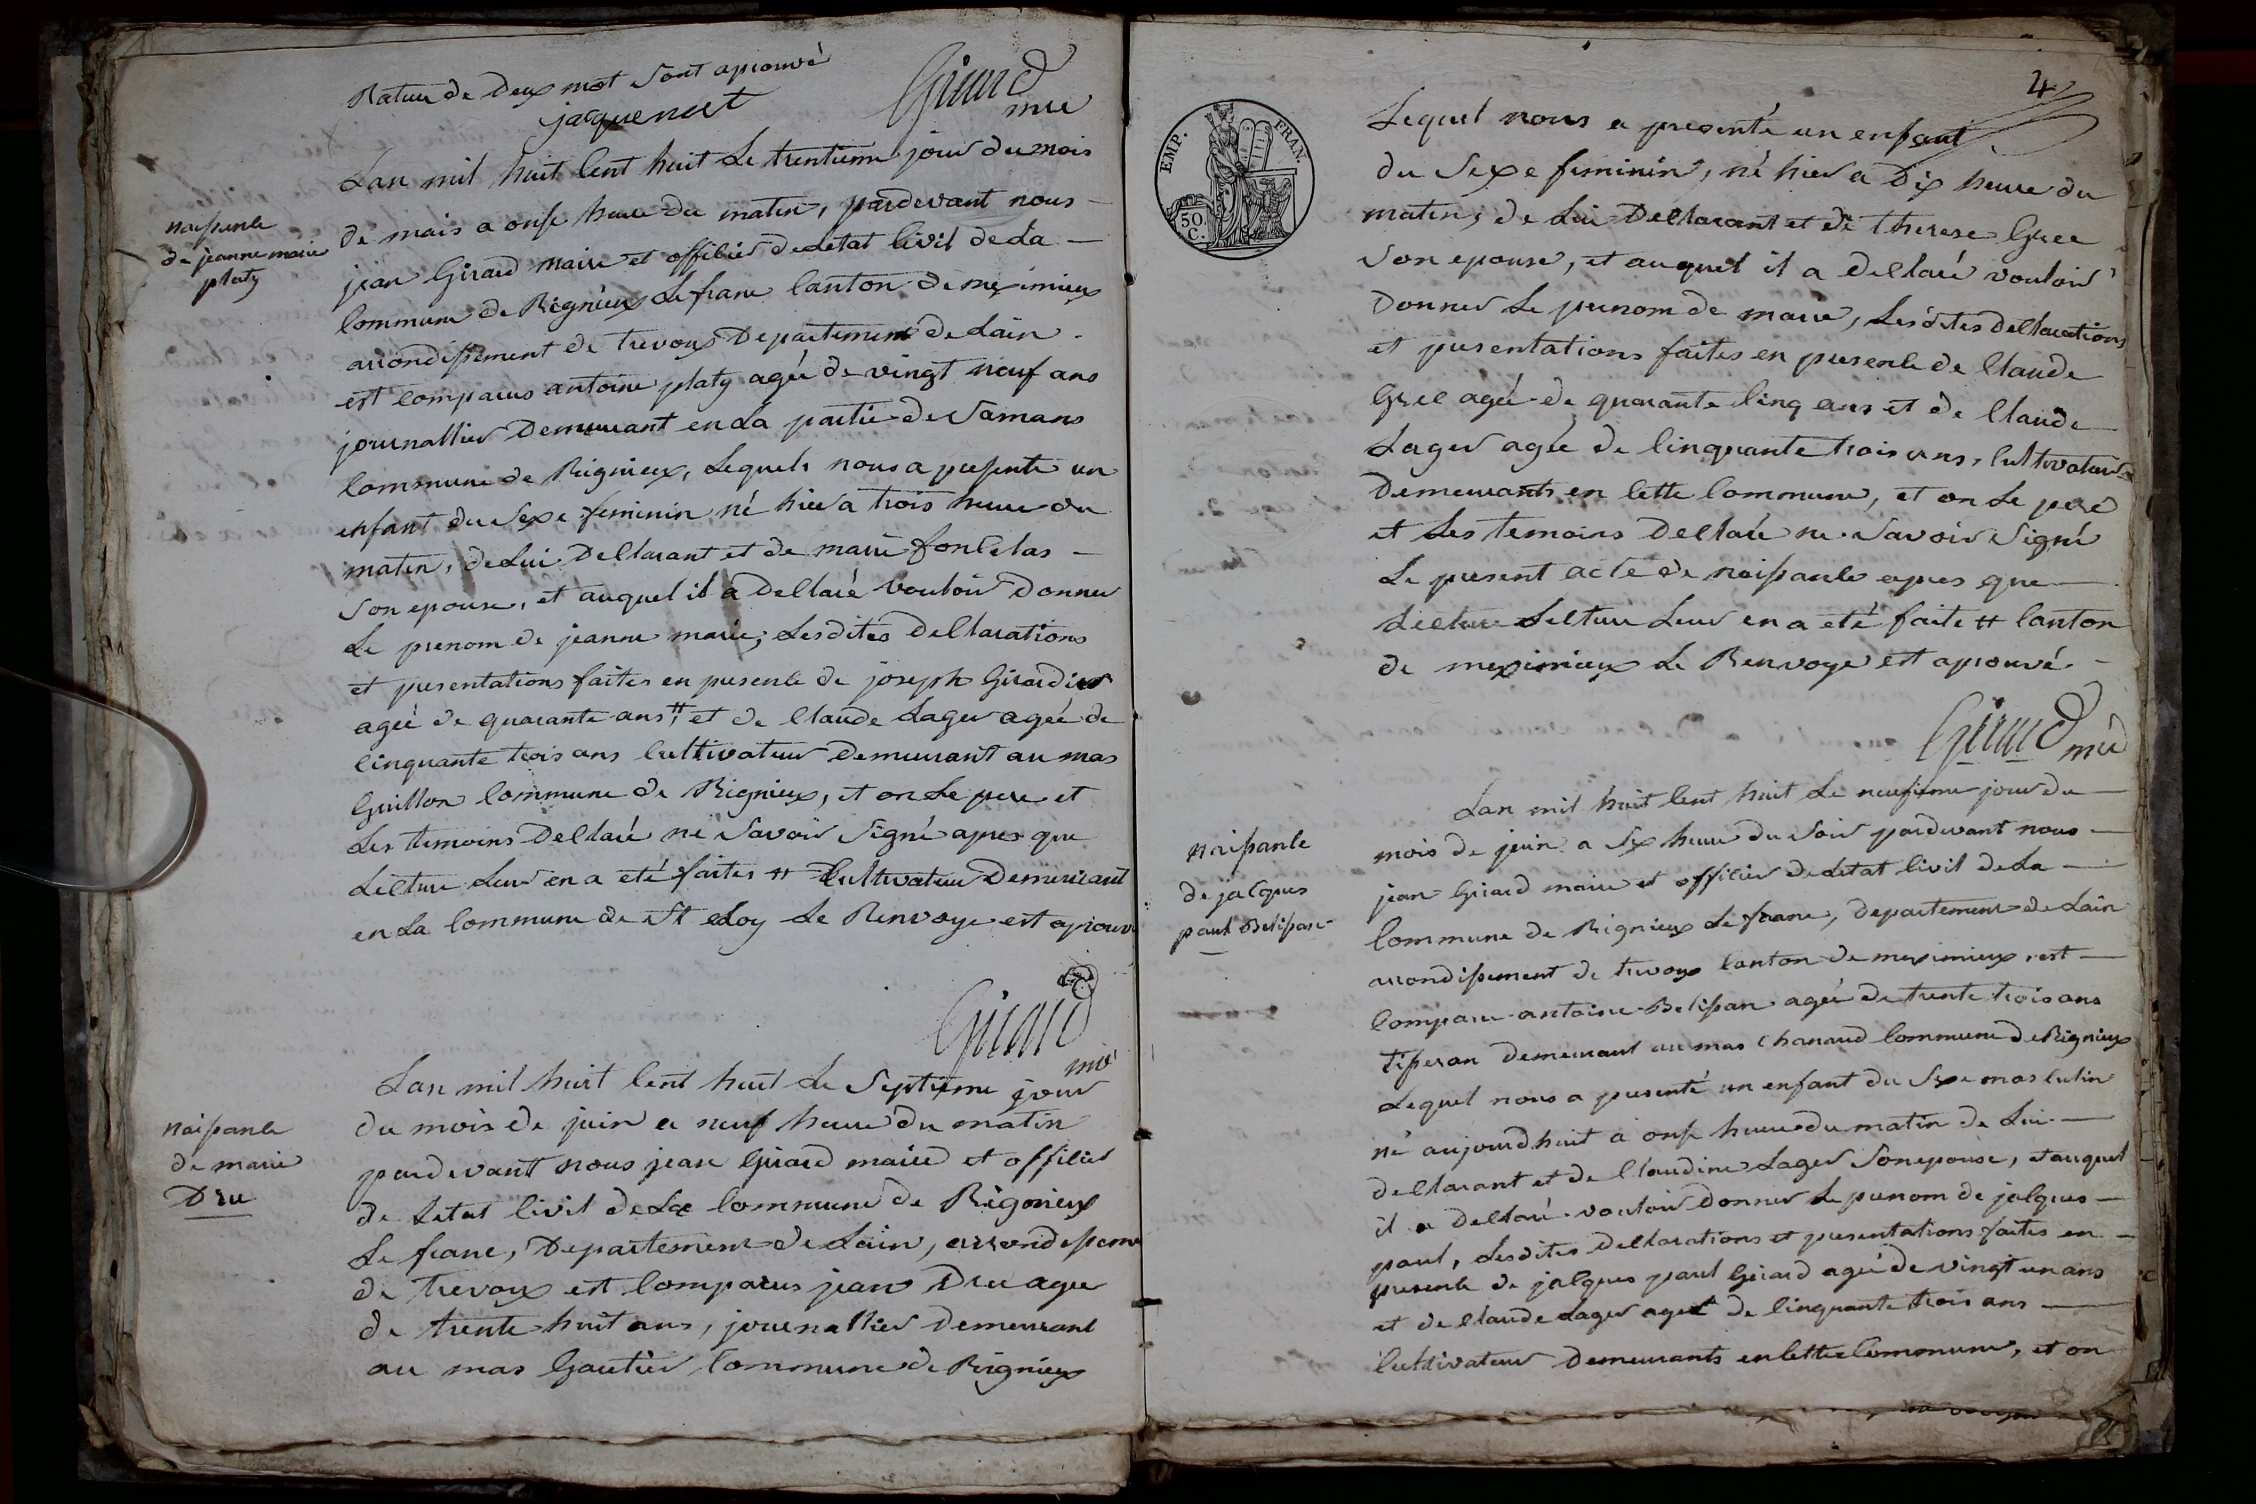 Rature de Deux mot Sont aprouvé
jacquenot
Girard
mre
Lan mil huit Cent huit Le trentieme jour du mois
de mais a onse heure du matin, pardevant nous
naissance
de jeanne marie
platy
jean Girard maire et officier de Letat Civil de La
Commune de Rignieux Le franc Canton de meximieux
arrondissement de trevoux Departement de Lain
est comparus antoine platy ageé de vingt neuf ans
journallier Demeurant en La partie de Samans
Commune de Rignieux, Lequels nous a presente un
enfant du Sexe feminin né hier a trois heure du
matin, de Lui Declarant et de marie fontelas
Son epouse, et auquel il a Declaré vouloir Donner
Le prenom de jeanne marie, Lesdites Declarations
et presentations faites en presence de joseph Girardier
ageé de quarante ans # et de Claude Lager ageé de
Cinquante trois ans Cultivateur Demeurant au mas
Guillon Commune de Rignieux, et on Le pere et
Les temoins Declaré ne Savoir Signé apres que
Lecture Leur en a eté faites # Cultivateur Demeurant
en La Commune de St eloy Le Renvoye est aprouvé
Girard
mre
naissance
de marie
Dru
Lan mil huit Cent huit Le Septieme jour
du mois de juin a neuf heure du matin
pardevant nous jean Girard maire et officier
de Letat Civil de La Commune de Rignieux
Le franc, Departement de Lain, arrondissement
de trevoux est Comparus jean Dru agee
de trente huit ans, journallier Demeurant
au mas Gautier Commune de Rignieux
4
EMP. FRAN.
50 C.
Lequel nous a presenté un enfant
du Sexe feminin, né hier a Dix heure du
matin, de Lui Declarant et de therese Gree
Son epouse, et auquel il a Declaré vouloir
Donner Le prenom de marie, Lesdites Declarations
et presentations faites en presence de Claude
Gree ageé de quarante Cinq ans et de Claude
Lager ageé de Cinquante trois ans, Cultivateur
Demeurants en Cette Commune, et on Le pere
et Les temoins Declaré ne Savoir Signé
Le present acte de naissance apres que
Lecture Lecture Leur en a eté faite # Canton
de meximieux Le Renvoye est aprouvé
Girard mre
naissance
de jacques
paul Belissan
Lan mil huit Cent huit Le neufieme jour du
mois de juin a Six heure du Soir pardevant nous
jean Girard maire et officier de Letat Civil de La
Commune de Rignieux Le franc, Departement de Lain
arrondissement de trevoux Canton de meximieux, est
Compare antoine Belissan ageé de trente trois ans
tisseran Demeurant au mas Chanaud Commune de Rignieux
Lequel nous a presenté un enfant du Sexe masculin
né aujourdhuit a onse heure du matin de Lui
declarant et de Claudine Lager Son epouse, et auquel
il a Declaré vouloir Donner Le prenom de jacques
paul, Lesdites Declarations et presentations faites en
presence de jacques paul Girard ageé de vingt un ans
et de Claude Lager ageé de Cinquante trois ans
Cultivateur Demeurants en Cette Commune, et on